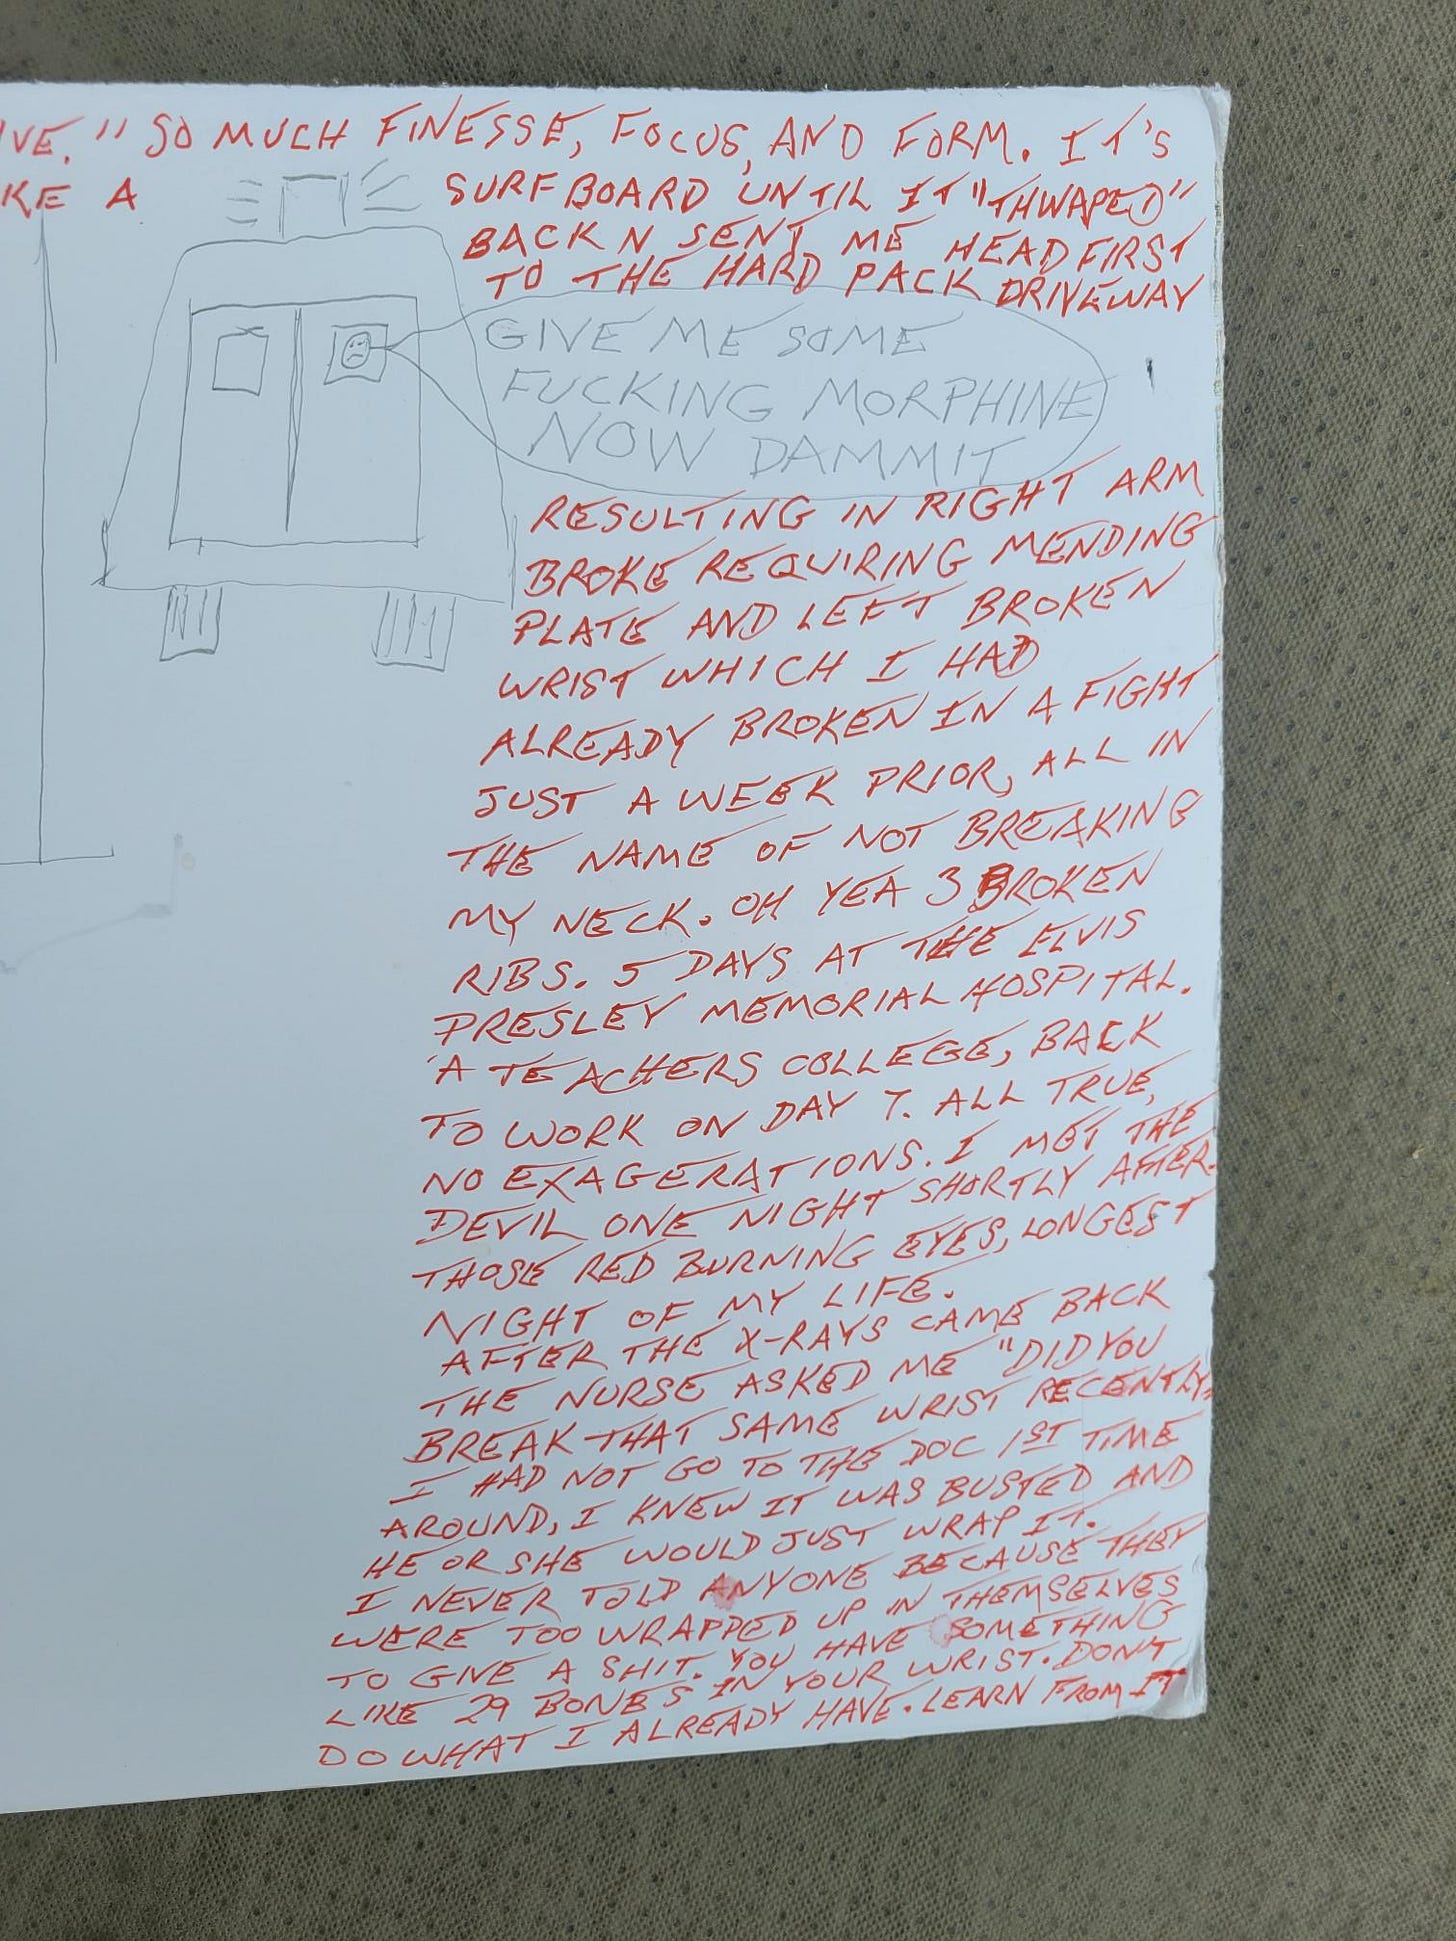 VE." SO MUCH FINESSE, FOCUS, AND FORM. IT'S
KE A SURFBOARD UNTIL IT "THWAPED"
BACK N SENT ME HEAD FIRST
TO THE HARD PACK DRIVEWAY
GIVE ME SOME
FUCKING MORPHINE
NOW DAMMIT
RESULTING IN RIGHT ARM
BROKE REQUIRING MENDING
PLATE AND LEFT BROKEN
WRIST WHICH I HAD
ALREADY BROKEN IN A FIGHT
JUST A WEEK PRIOR, ALL IN
THE NAME OF NOT BREAKING
MY NECK. OH YEA 3 BROKEN
RIBS. 5 DAYS AT THE ELVIS
PRESLEY MEMORIAL HOSPITAL.
A TEACHERS COLLEGE, BACK
TO WORK ON DAY 7. ALL TRUE,
NO EXAGERATIONS. I MET THE
DEVIL ONE NIGHT SHORTLY AFTER.
THOSE RED BURNING EYES, LONGEST
NIGHT OF MY LIFE.
AFTER THE X-RAYS CAME BACK
THE NURSE ASKED ME "DID YOU
BREAK THAT SAME WRIST RECENTLY,
I HAD NOT GO TO THE DOC 1ST TIME
AROUND, I KNEW IT WAS BUSTED AND
HE OR SHE WOULD JUST WRAP IT.
I NEVER TOLD ANYONE BECAUSE THEY
WERE TOO WRAPPED UP IN THEMSELVES
TO GIVE A SHIT. YOU HAVE SOMETHING
LIKE 29 BONES IN YOUR WRIST. DON'T
DO WHAT I ALREADY HAVE. LEARN FROM IT